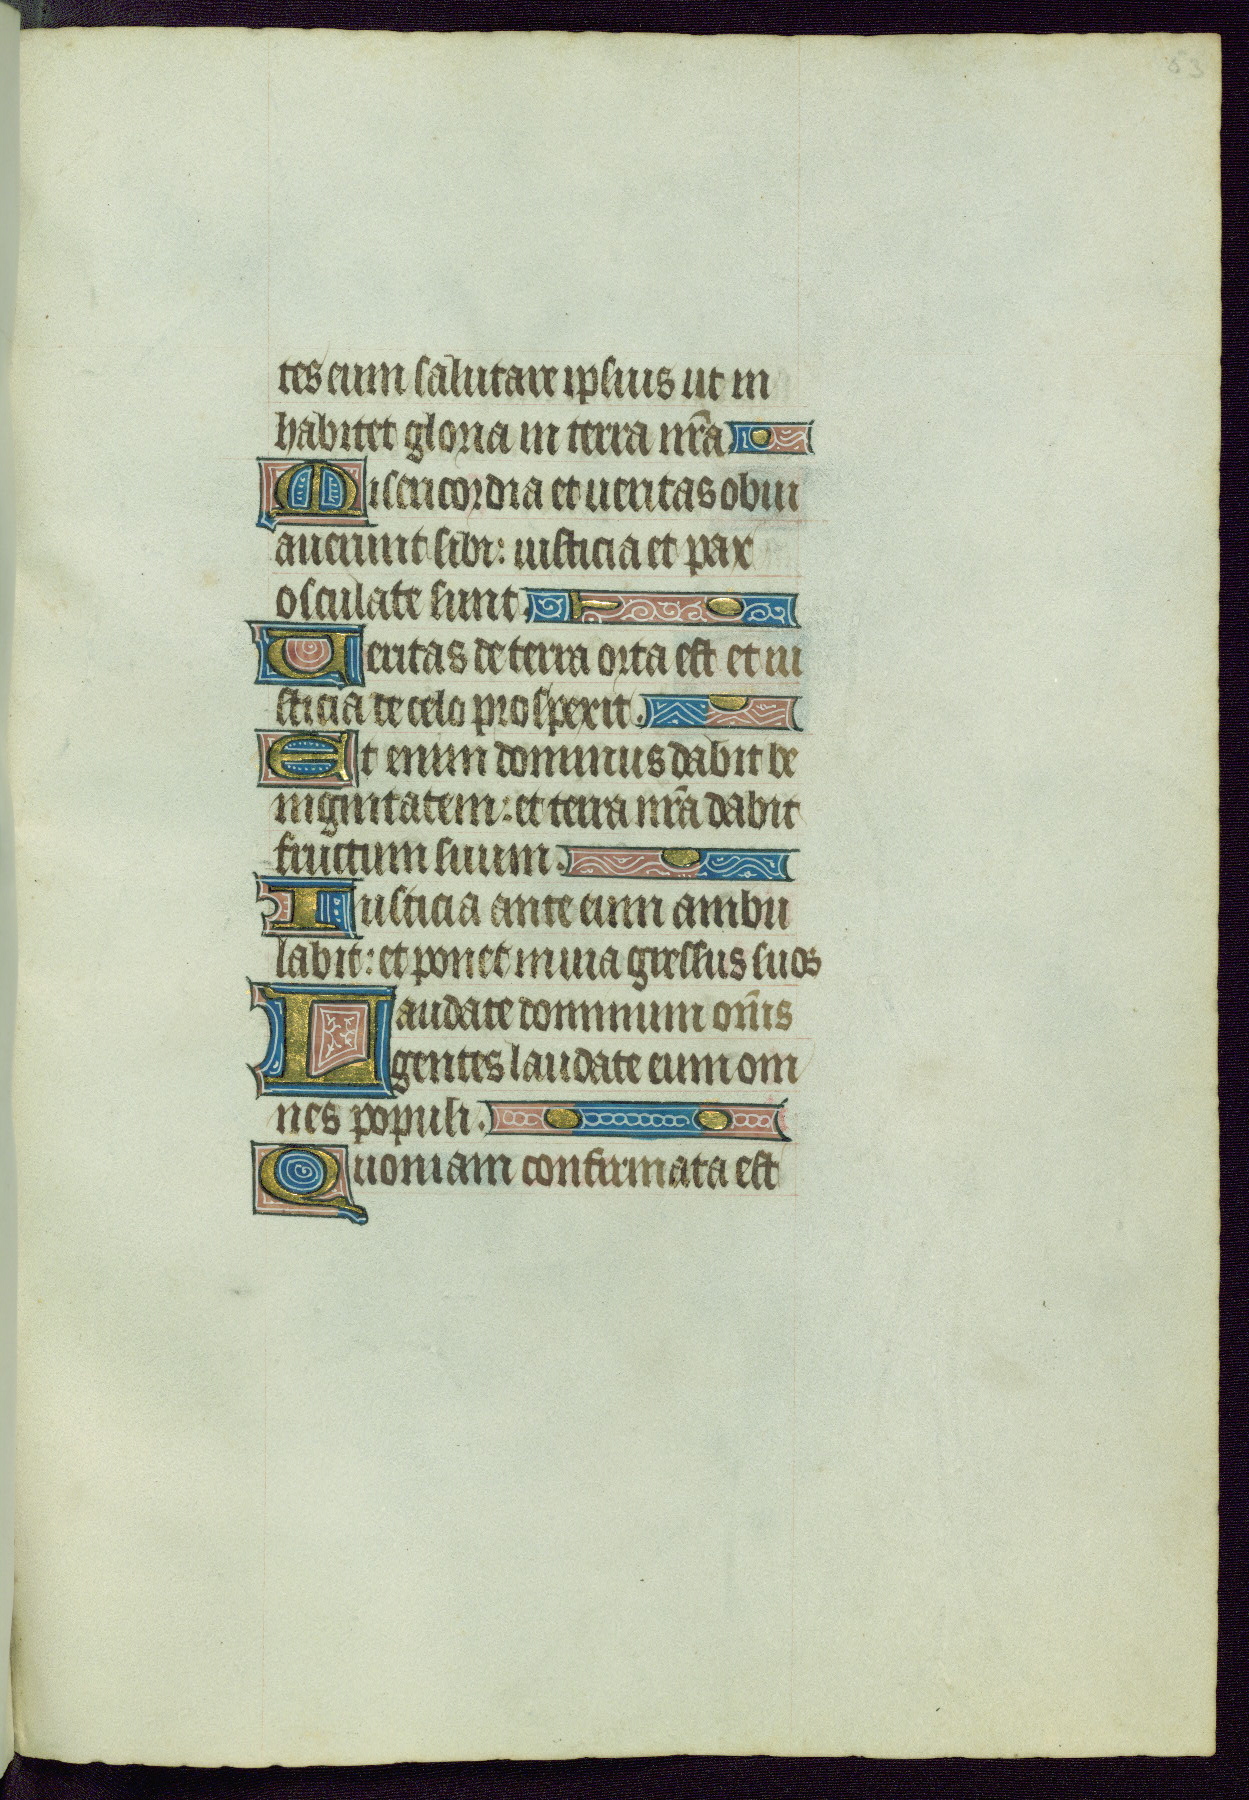 53
tes eum salutare ipsius ut in
habitet gloria in terra nr̄a
Misericordia et ueritas obui
auerunt sibi: iusticia et pax
osculate sunt.
Ueritas de terra orta est et iu
sticia de celo prospexit.
Et enim dominus dabit be
nignitatem: et terra nr̄a dabit
fructum suum.
Iusticia ante eum ambu
labit: et ponet in uia gressus suos
Laudate dominum om̄s
gentes laudate eum om
nes populi.
Quoniam confirmata est